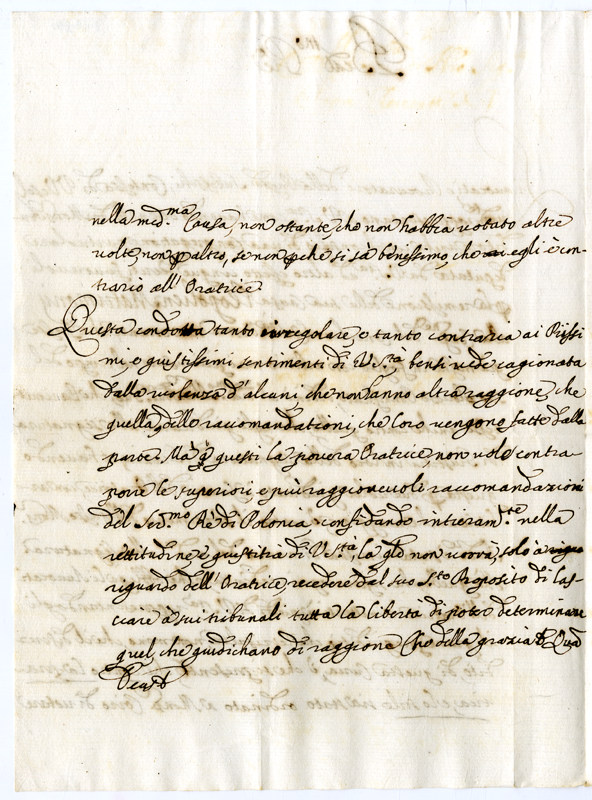 nella med.ma Causa, non ostante, che non habbia votato altre
volte, non p altro, se non pche si sà benissimo, che egli è con-
trario all' Oratrice
Questa condotta tanto irregolare, e tanto contraria ai Piissi
mi, e giustissimi sentimenti di V. S.tà bensi vede cagionata
dalla violenza d'alcuni, che non hanno altra raggione, che
quella, delle raccomandationi, che loro vengono fatte dalla
parte. Mà p questi la povera Oratrice, non vole contra
porre le superiori, e più raggionevoli raccomandazioni
del Ser.mo Re di Polonia confidando intieram.te nella
rettitudine, e giustitia di V. S.tà, la qle non vorrà, solo à
riguardo dell' Oratrice, recedere dal suo S.to Proposito di las-
ciare à suoi tribunali tutta la libertà di poter determinare
quel, che giudichano di raggione Che della grazia & Quã
Deus &